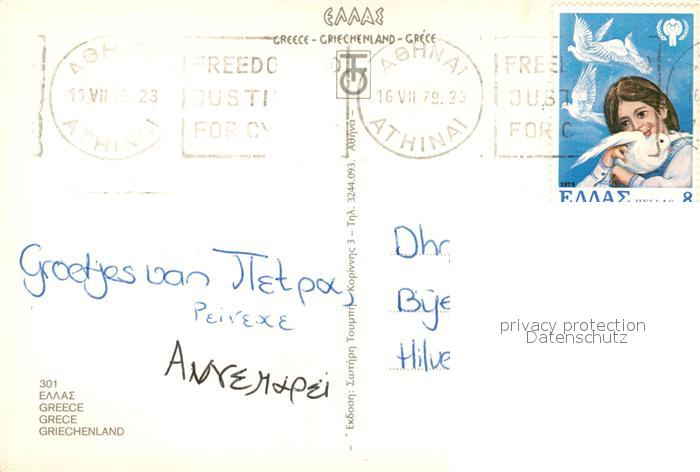 ΕΛΛΑΣ
GREECE - GRIECHENLAND - GRÉCE
ΑΘΗΝΑΙ
16 VII 79. 23
ATHINAI
FREEDO
JUSTI
FOR CY
ΑΘΗΝΑΙ
16 VII 79. 23
ATHINAI
FREE
JUST
FOR C
1979
ΕΛΛΑΣ HELLAS 8
Groetjes van Πετρα,
Ρεινεχε
Αννεμαρεί
301
ΕΛΛΑΣ
GREECE
GRECE
GRIECHENLAND
Έκδοση: Σωτήρη Τουμπή - Κορίννης 3 - Τηλ. 3244.093. Αθήνα -
Dhr
Bije
Hilve
privacy protection
Datenschutz